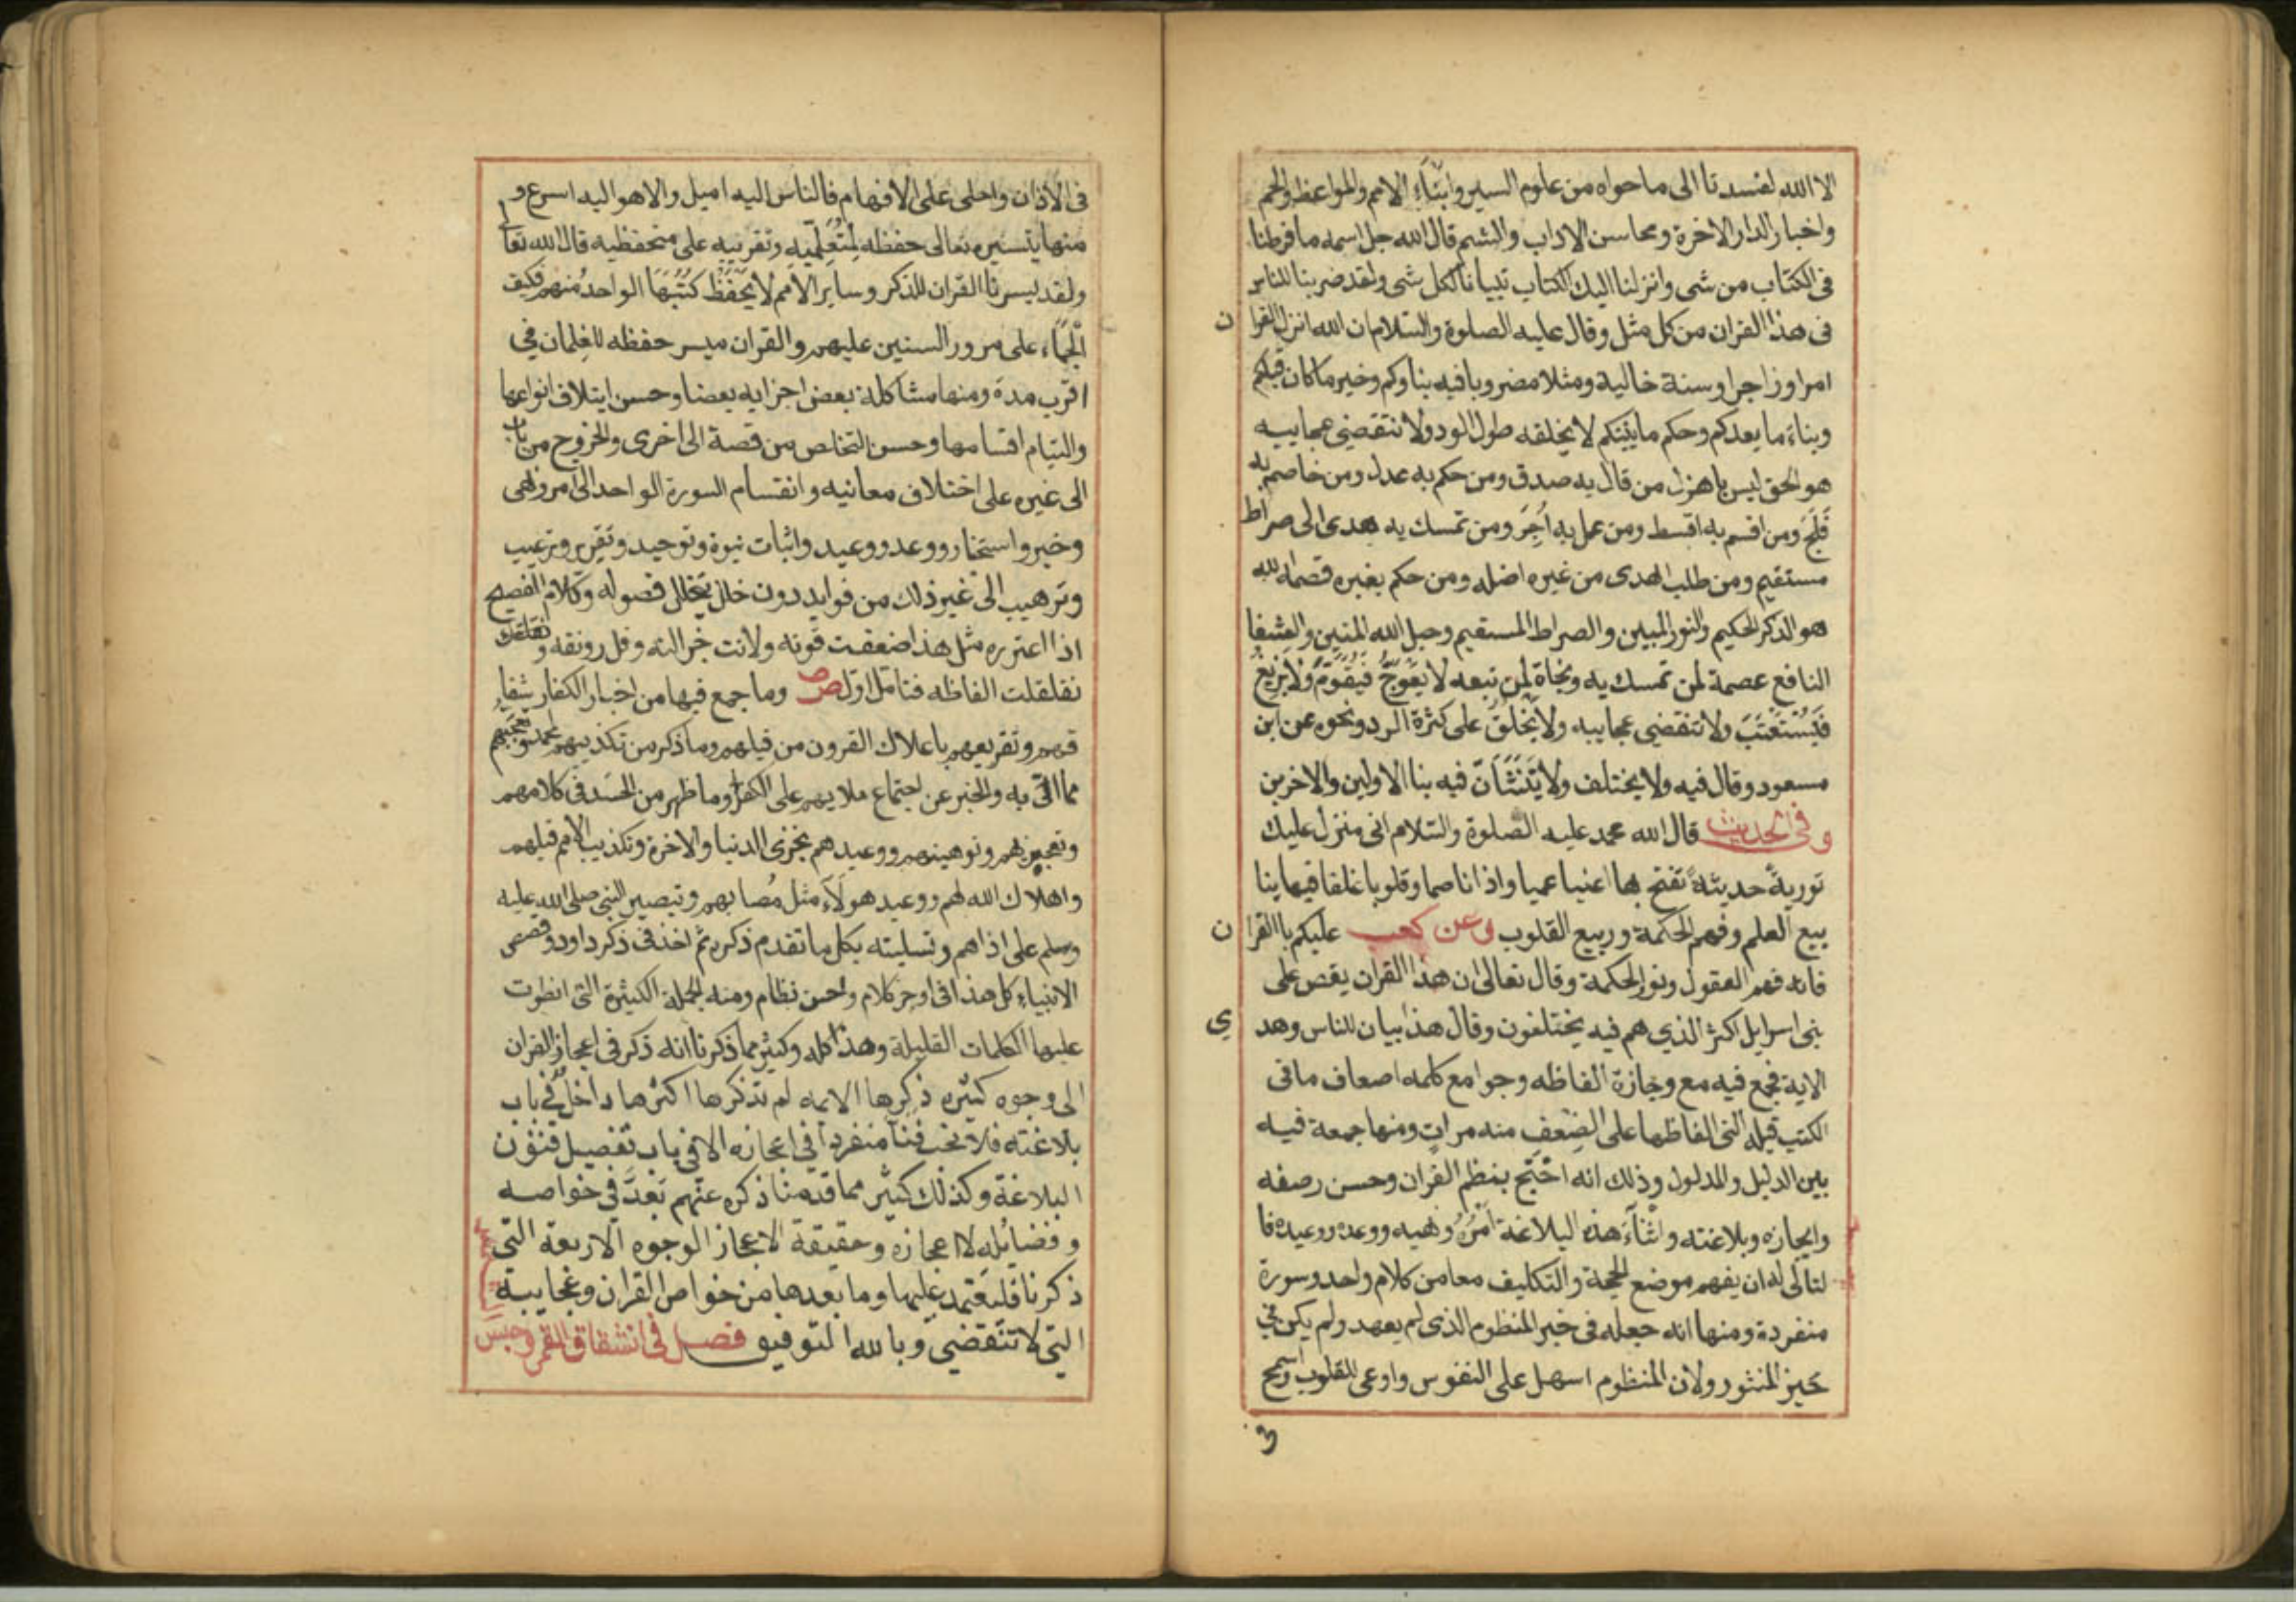 الا الله لفسدتا الى ما حواه من علوم السير وانبآء الامم والمواعظ والحكم
واخبار الدار الاخرة ومحاسن الاداب والشيم قال الله جل اسمه ما فرطنا
فى الكتاب من شى وانزلنا اليك الكتاب تبيانا لكل شى ولقد ضربنا للناس
فى هذا القران من كل مثل وقال عليه الصلوة والسلام ان الله انزل القرا ن
امرا وزاجرا وسنة خالية ومثلا مضروبا فيه بناوكم وخبر ما كان قبلكم
وبناء ما بعدكم وحكم ما بينكم لا يخلقه طول الود ولا تنقضى عجايبه
هو الحق ليس باهزل من قال به صدق ومن حكم به عدل ومن خاصم به
فَلَجَ ومن اقسم به اقسط ومن عمل به اُجِرَ ومن تمسك به هدى الى صراط
مستقيم ومن طلب الهدى من غيره اضله ومن حكم بغيره قصمه الله
هو الذكر الحكيم والنور المبين والصراط المستقيم وحبل الله المتين والشفا
النافع عصمة لمن تمسك به ونجاة لمن تبعه لا يَعْوَجُّ فَيُقَوَّمَ ولا يزيغُ
فَيُسْتَعْتَبَ ولا تنقضى عجايبه ولا يَخلَقُ على كثرة الرد ونحوه عن ابن
مسعود وقال فيه ولا يختلف ولا يَتَشَآنّ فيه بنا الاولين والاخرين
وفى الحديث قال الله محمد عليه الصلوة والسلام انى منزل عليك
توريةً حديثةً تفتح بها اعنيا عميا واذانا صما وقلوبا غلفا فيها ينا
بيع العلم وفهم الحكمة وربيع القلوب وعن كعب عليكم باالقرا ن
فانه فهم العقول ونور الحكمة وقال تعالى ان هذا القران يقص على
بنى اسرايل اكثر الذي هم فيه يختلفون وقال هذا بيان للناس وهد ي
الاية فجمع فيه مع وجازة الفاظه وجوامع كلمه اضعاف ما فى
الكتب قبله التى الفاظها على الضِعفِ منه مرات ومنها جمعة فيه
بين الدليل والمدلول وذلك انه احْتُجّ بنظم القران وحسن رصفه
وايجازه وبلاغته واثنآء هذه البلاغة اَمْرُهُ ونهيه ووعده ووعيده فا
لتالى له ان يفهم موضع الحجة والتكليف معا من كلام واحد وسورة
منفردة ومنها انه جعله فى خبر المنظوم الذى لم يعهد ولم يكن في
حَيز المنثور ولان المنظوم اسهل على النفوس واوعى للقلوب واسمح
فى الاذان واحلى على الافهام فالناس اليه اميل والاهوا اليه اسرع و
منها تيسيره تعالى حفظه لِمُتَعَلِّمِيْهِ وتقريبه على متحفظيه قال الله تعالى
ولقد يسرنا القران للذكر وساير الامم لا يَحْفَظُ كُتُبَهَا الواحدُ منهم فكيف
الجَمَّاء على مرور السنين عليهم والقران ميسر حفظه للغِلمان في
اقرب مدة ومنها مشاكلة بعض اجزايه بعضا وحسن ايتلاف انواعها
والتيام اقسامها وحسن التخلص من قصة الى اخرى والخروج من باب
الى غيره على اختلاف معانيه وانقسام السورة الواحد الى امر ونهى
وخبر واستخبار ووعد ووعيد واثبات نبوة وتوحيد وتقرير وترغيب
وترهيب الى غير ذلك من فوايد دون خلل يتخلل فصوله وكلام الفصيح
اذا اعتره مثل هذا ضعفت قوته ولانت جزالته وقل رونقه و
تقلقلت الفاظه فتامل اول ص وما جمع فيها من اخبار الكفار شقا
قهم وتقريعهم باعلاك القرون من قبلهم وما ذكر من تكذيبهم لمحمد وتعجبهم
مما اتى به والخبر عن اجتماع ملايهم على الكفر وما ظهر من الحَسَد فى كلامهم
وتعجيزهم وتوهينهم ووعيدهم بخزى الدنيا والاخرة وتكذيب الامم قبلهم
واهلاك الله لهم ووعيد هولآء مثل مُصابهم وتصبير النبى صلى الله عليه
وسلم على اذاهم وتسليته بكل ما تقدم ذكره ثم اخذ فى ذكر داود وقصص
الانبياء كل هذا فى اوجز كلام واحسن نظام ومنه الجملة الكثيرة التى انطوت
عليها الكلمات القليلة وهذا كله وكثير مما ذكرنا انه ذكر فى اعجاز القران
الى وجوه كثيره ذكرها الايمه لم نذكرها اكثرها داخل في باب
بلاغته فلا نحب فنآ منفردا في اعجازه الا في باب تفصيل فنون
البلاغة وكذلك كثير مما قدمنا ذكره عنهم يُعَدّ فى خواصه
وفضايله لا اعجازه وحقيقة الاعجاز الوجوه الاربعة التى
ذكرنا فليعتمد عليها وما بعدها من خواص القران وعجايبه
التى لا تنقضي وبا لله التوفيق فصل فى انشقاق القمر وحبس